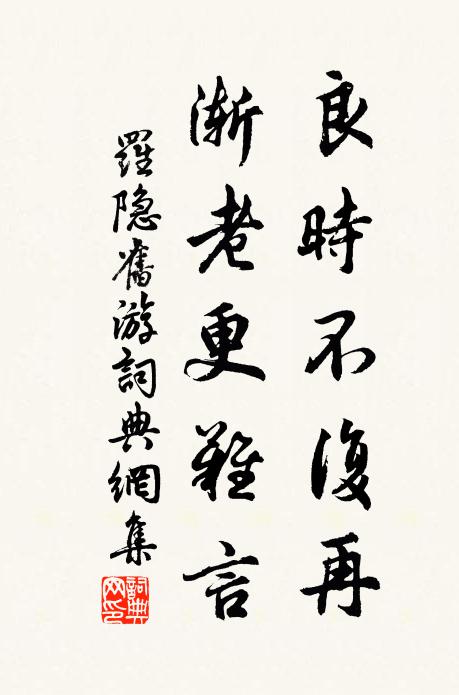 良時不復再
漸老更難言
羅隐舊游詞典網集
詞典网印